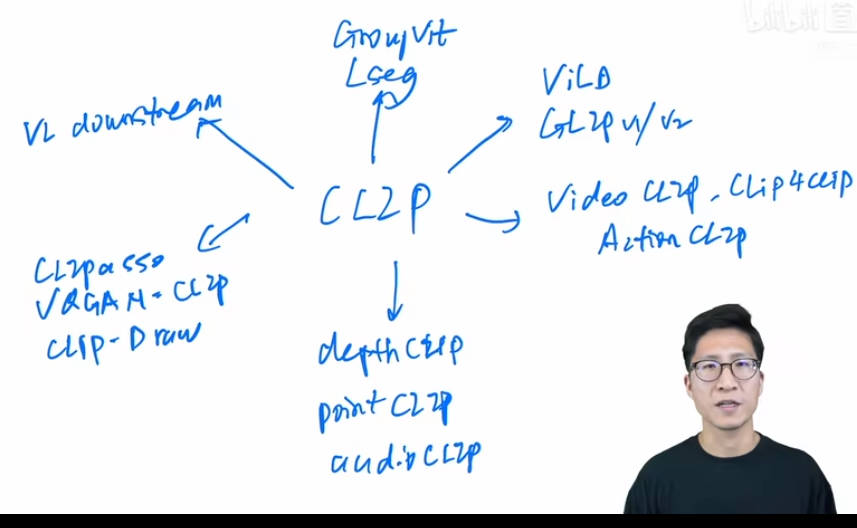 GroupViT
Lseg
ViLD
GLIP v1/v2
VL downstream
CLIP
Video CLIP, CLip4clip
Action CLIP
CLIPasso
VQGAN-CLIP
CLIP-Draw
depth CLIP
point CLIP
audio CLIP
bilibili